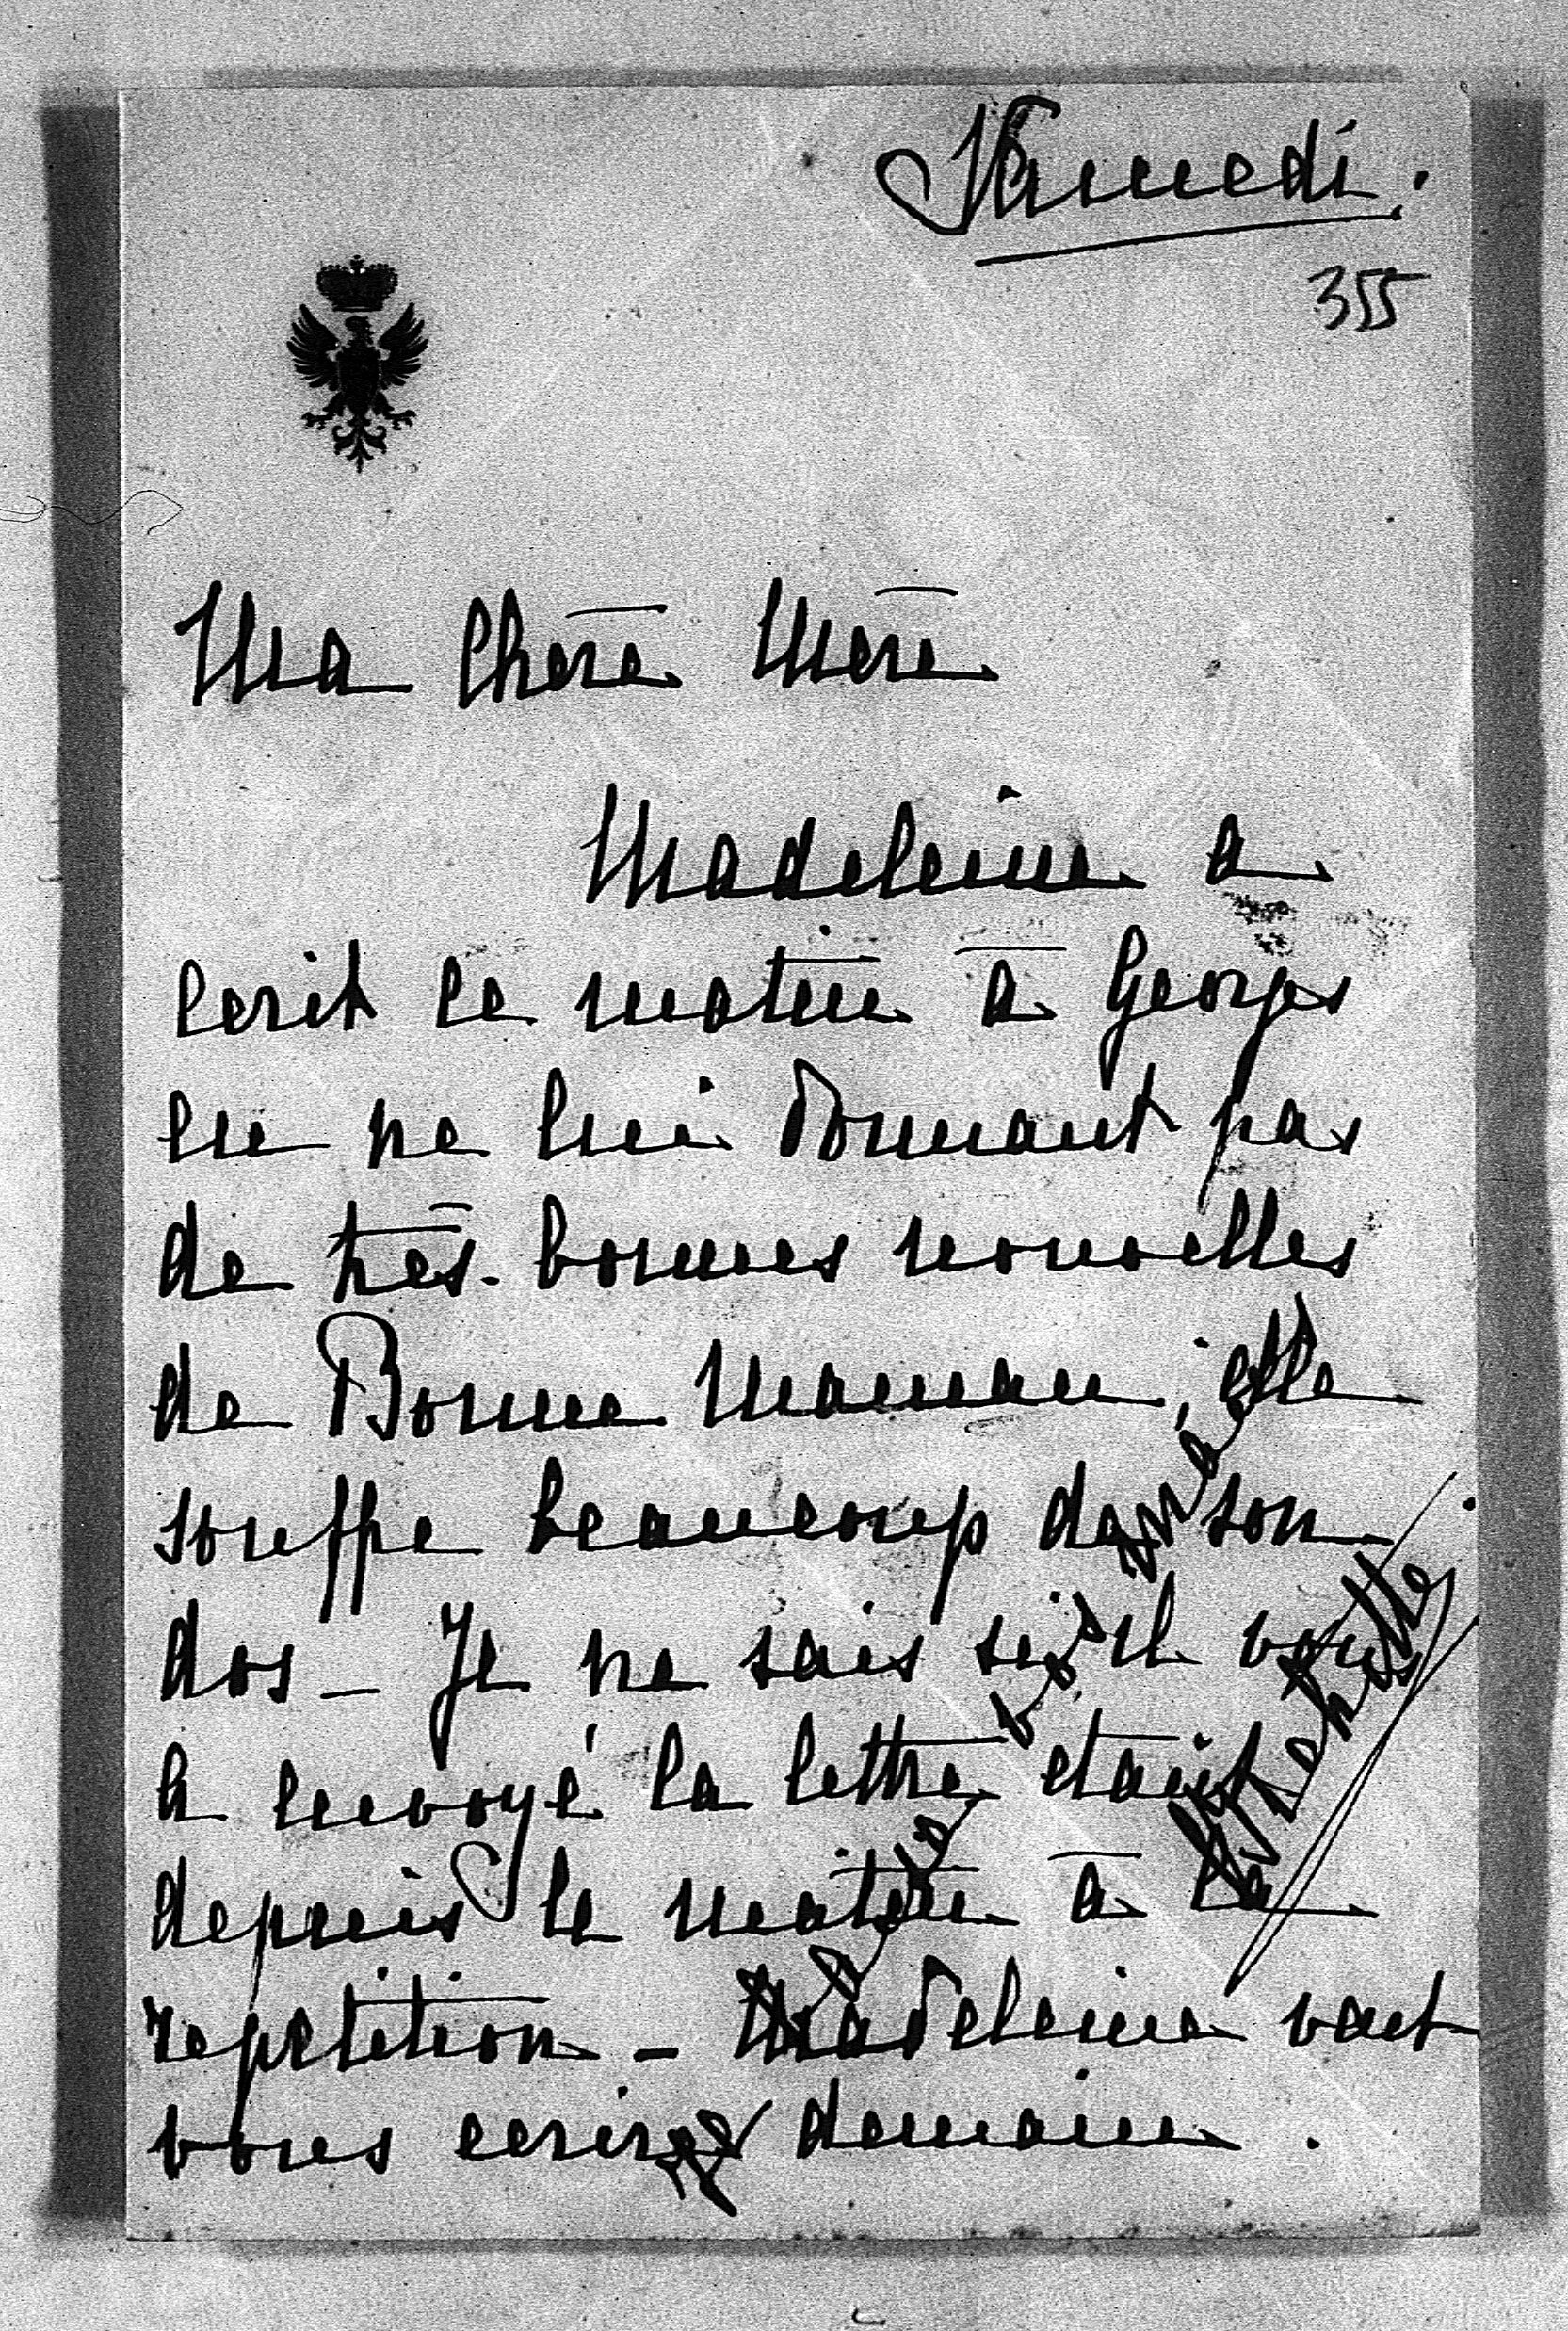 Samedi.
355
Ma Chère Mère
Madeleine a
ecrit ce matin à Georges
en ne lui donnant pas
de très bonnes nouvelles
de Bonne Maman, elle
souffre beaucoup de son
dos _ Je ne sais si il vous
a envoyé la lettre etant
depuis le matin à la
repetition _ Madeleine veut
vous ecrire demain.